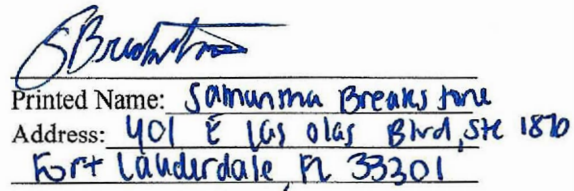 SBreakstone
Printed Name: Samantha Breakstone
Address: 401 E Las Olas Blvd, Ste 1870
Fort Lauderdale, FL 33301